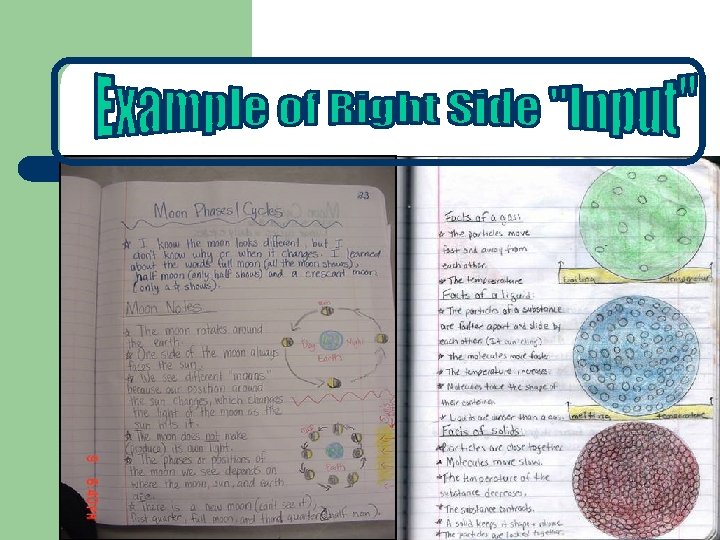 Example of Right Side "Input"
23
Moon Phases/Cycles
☆ I know the moon looks different, but I
don't know why or when it changes. I learned
about the words full moon (all the moon shows),
half moon (only half shows) and a crescent moon
(only a ¼ shows).
Moon Notes
☆ The moon rotates around
the earth.
☆ One side of the moon always
faces the sun.
☆ We see different "moons"
because our position around
the sun changes, which changes
the light of the moon as the
sun hits it.
☆ The moon does not make
(produce) its own light.
☆ The phases or positions of
the moon we see depends on
where the moon, sun, and earth
are.
☆ There is a new moon (can't see it),
first quarter, full moon, and third quarter (half moon).
Day
Night
Earth
Earth
Facts of a gas:
☆ The particles move
fast and away from
each other.
☆ The temperature
boiling
temperature
Facts of a liquid:
☆ The particles of a substance
are farther apart and slide by
each other
☆ The molecules move faster
☆ The temperature increases.
☆ Molecules take the shape of
their container.
☆ Liquids are denser than a gas.
melting
temperature
Facts of solids:
Particles are close together
☆ Molecules move slow.
☆ The temperature of the
substance decreases.
☆ The substance contracts.
☆ A solid keeps it shape + volume
☆ The particles are locked together.